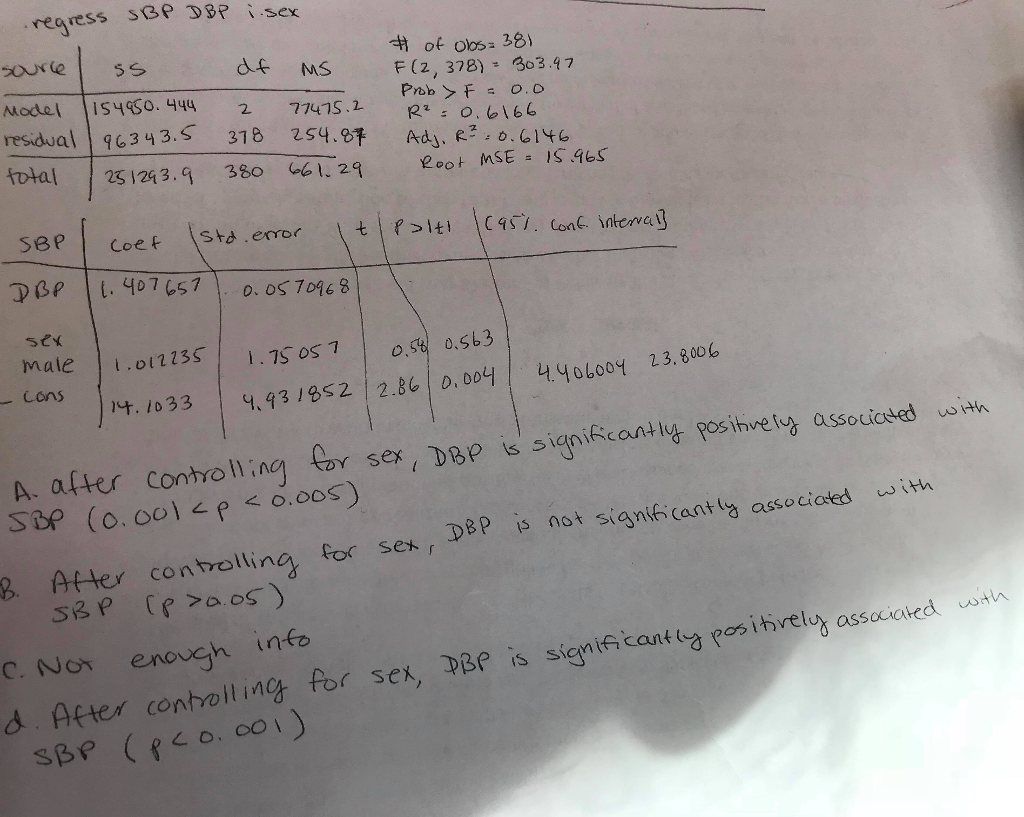 .regress SBP DBP i.sex
# of obs = 381
source SS df MS F(2, 378) = 303.97
Prob > F = 0.0
Model 154950.444 2 77475.2 R² = 0.6166
residual 96343.5 378 254.87 Adj. R² = 0.6146
total 251293.9 380 661.29 Root MSE = 15.965
SBP coef Std. error t P>|t| [95%. conf. interval]
DBP 1.407657 0.0570968
sex
male 1.012235 1.75057 0.58 0.563
_cons 14.1033 4.931852 2.86 0.004 4.406004 23.8006
A. after controlling for sex, DBP is significantly positively associated with
SBP (0.001 < p < 0.005)
B. After controlling for sex, DBP is not significantly associated with
SBP (p > 0.05)
C. Not enough info
d. After controlling for sex, DBP is significantly positively associated with
SBP (p < 0.001)